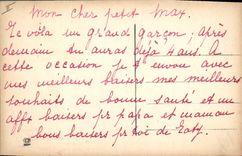 Mon cher petit Max.
Te voilà un grand garçon ; après
demain tu auras déjà 4 ans. A
cette occasion je t'envoie avec
mes meilleurs baisers mes meilleurs
souhaits de bonne santé et un
affx baisers pr papa et maman
bons baisers pr toi de